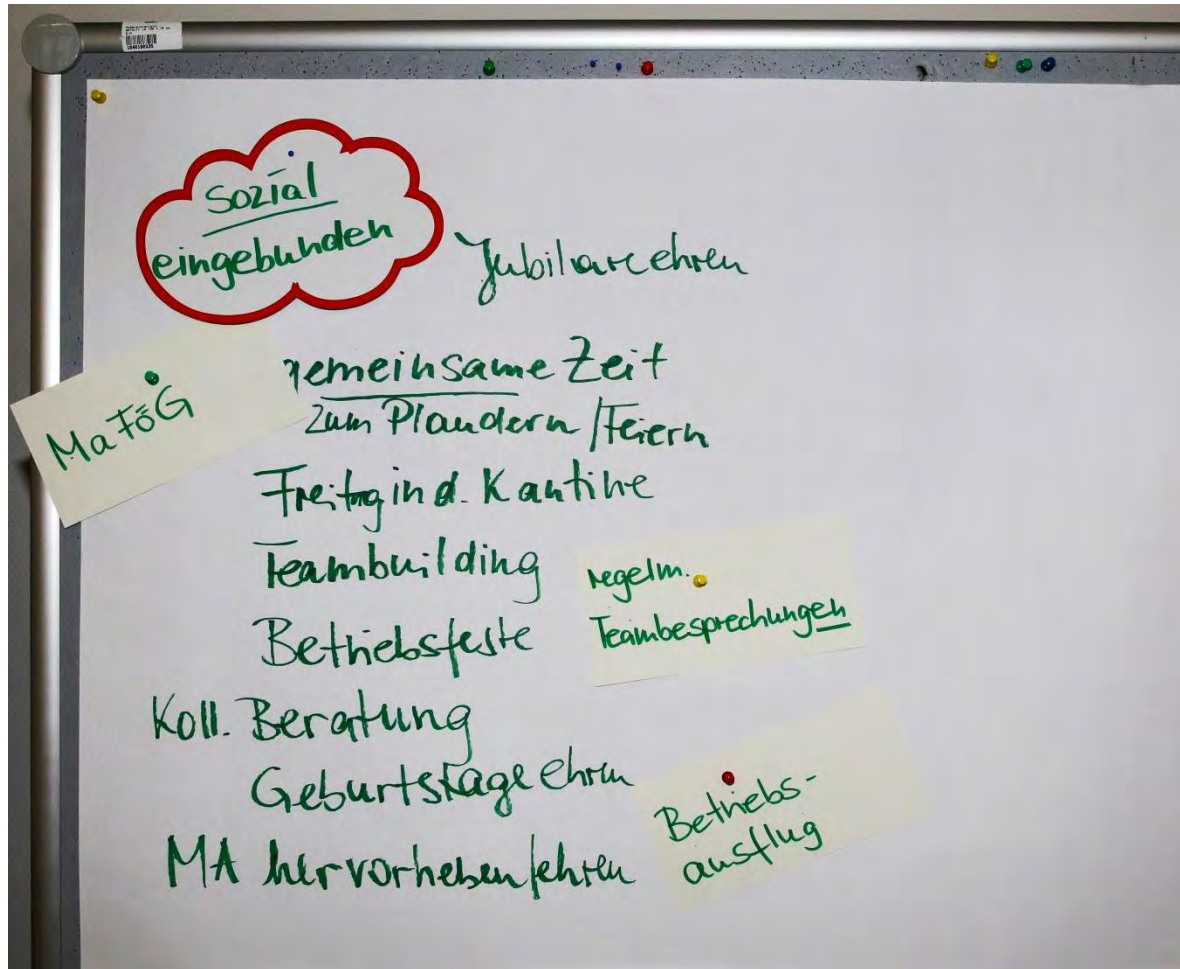 Sozial
eingebunden
Jubilare ehren
gemeinsame Zeit
zum Plaudern / Feiern
MaFöG
Freitag in d. Kantine
Teambuilding
regelm.
Teambesprechungen
Betriebsfeste
Koll. Beratung
Geburtstage ehren
Betriebs-
ausflug
MA hervorheben / ehren